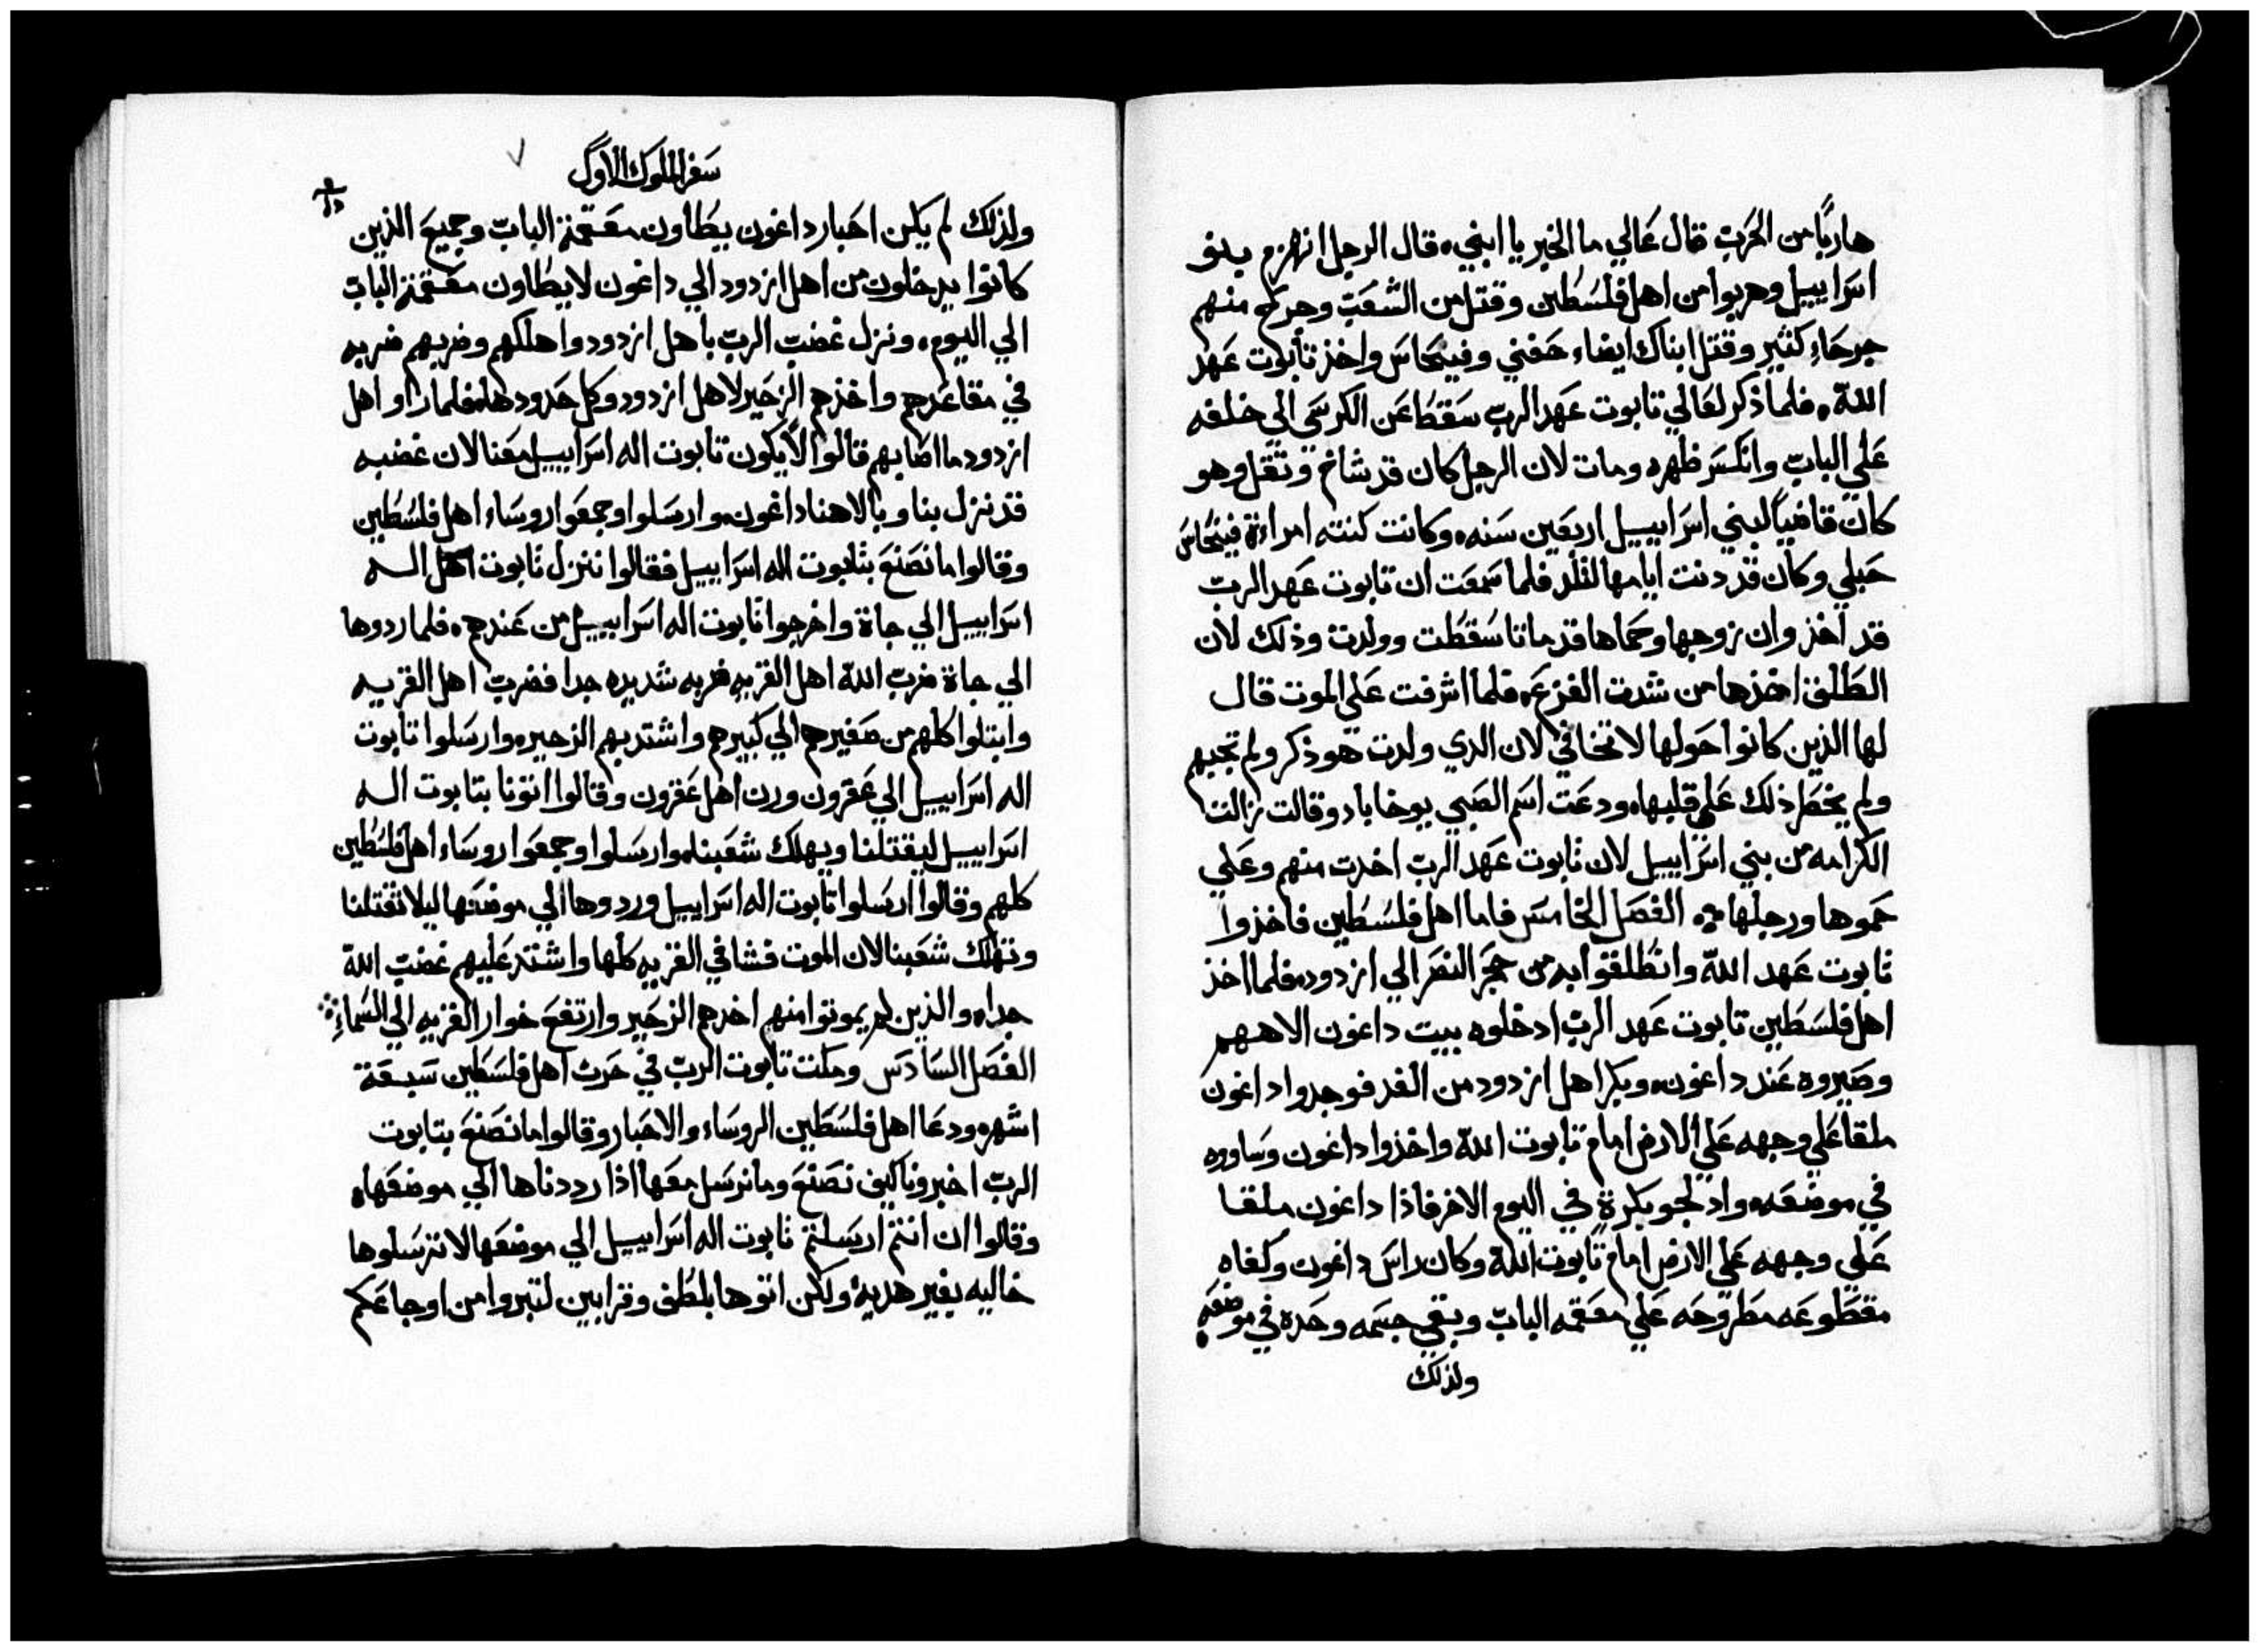 هاربًا من الحرب قال عالي ما الخبر يا ابني. قال الرجل انهزم بنو
اسراييل وهربوا من اهل فلسطين وقتل من الشعب وجرح منهم
جرحاء كثير وقتل ابناك ايضاء حفني وفينحاس واخذ تابوت عهد
الله. فلما ذكر لعالي تابوت عهد الرب سقط عن الكرسي الي خلفه
علي الباب وانكسر ظهره ومات لان الرجل كان قد شاخ وثقل وهو
كان قاضيًا لبني اسراييل اربعين سنه. وكانت كنته امراءة فينحاس
حبلي وكان قد دنت ايامها لتلد فلما سمعت ان تابوت عهد الرب
قد اخذ وان زوجها وحماها قد ماتا سقطت وولدت وذلك لان
الطلق اخذها من شدت الفزع. فلما اشرفت علي الموت قال
لها الذين كانوا حولها لا تخافي لان الدي ولدت هو ذكر ولم تجبهم
ولم يخطر ذلك علي قلبها. ودعت اسم الصبي يوخاباد وقالت زالت
الكرامه من بني اسراييل لان تابوت عهد الرب اخدت منهم وعلي
حموها ورجلها. الفصل الخامس فاما اهل فلسطين فاخذوا
تابوت عهد الله وانطلقوا به من حجر النصر الي ازدود. فلما اخذ
اهل فلسطين تابوت عهد الرب ادخلوه بيت داغون الاههم
وصيروه عند داغون. وبكر اهل ازدود من الغد فوجدوا داغون
ملقا علي وجهه علي الارض امام تابوت الله واخذوا داغون وساووه
في موضعه. وادلجو بكرة في اليوم الاخر فاذا داغون ملقا
علي وجهه علي الارض امام تابوت الله وكان راس داغون وكفاه
مقطوعه مطروحه علي معقمه الباب وبقي جسمه وحده في موضعه
ولذلك
سفر الملوك الاول
ولذلك لم يكن احبار داغون يطاون معقمة الباب وجميع الذين
كانوا يدخلون من اهل ازدود الي داغون لا يطاون معقمة الباب
الي اليوم. ونزل غضب الرب باهل ازدود واهلكهم وضربهم ضربه
في مقاعدهم واخذهم الزحير لاهل ازدود وكل حدودها. فلما راو اهل
ازدود ما اصابهم قالوا لا يكون تابوت اله اسراييل معنا لان غضبه
قد نزل بنا وبالاهنا داغون. وارسلوا وجمعوا روساء اهل فلسطين
وقالوا ما نصنع بتابوت اله اسراييل فقالوا ننزل تابوت اله
اسراييل الي جاة واخرجوا تابوت اله اسراييل من عندهم. فلما ردوها
الي جاة ضرب الله اهل القريه ضربه شديده جدا فضرب اهل القريه
وابتلوا كلهم من صغيرهم الي كبيرهم واشتد بهم الزحير. وارسلوا تابوت
اله اسراييل الي عقرون ورن اهل عقرون وقالوا اتونا بتابوت اله
اسراييل ليقتلنا ويهلك شعبنا. وارسلوا وجمعوا روساء اهل فلسطين
كلهم وقالوا ارسلوا تابوت اله اسراييل وردوها الي موضعها ليلا تقتلنا
وتهلك شعبنا لان الموت فشا في القريه كلها واشتد عليهم غضب الله
جدا. والذين لم يموتوا منهم اخدهم الزحير وارتفع خوار القريه الي السماء
الفصل السادس ومكت تابوت الرب في حرث اهل فلسطين سبعة
اشهر. ودعا اهل فلسطين الروساء والاحبار وقالوا ما نصنع بتابوت
الرب اخبرونا كيف نصنع وما نرسل معها اذا رددناها الي موضعها.
وقالوا ان انتم ارسلتم تابوت اله اسراييل الي موضعها لا ترسلوها
خاليه بغير هديه ولكن اتوها بلطف وقرابين لتبروا من اوجاعكم